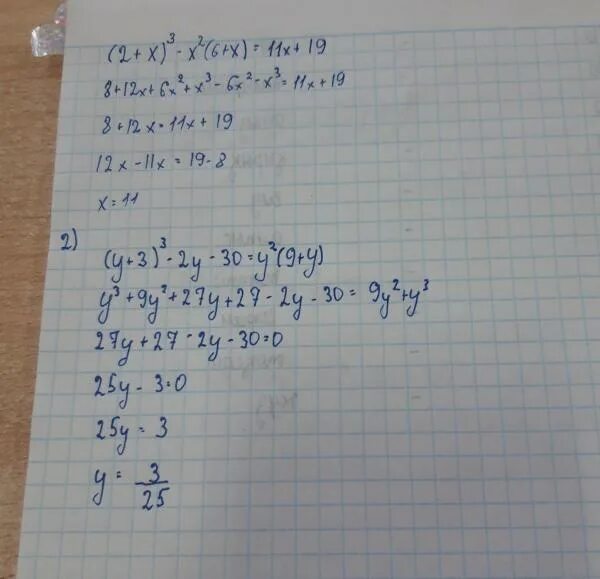 (2+x)³ - x²(6+x) = 11x + 19
8+12x+6x²+x³-6x²-x³=11x+19
8+12x=11x+19
12x-11x = 19-8
x=11
2)
(y+3)³-2y-30=y²(9+y)
y³+9y²+27y+27-2y-30= 9y²+y³
27y+27-2y-30=0
25y-3=0
25y = 3
y = 3/25